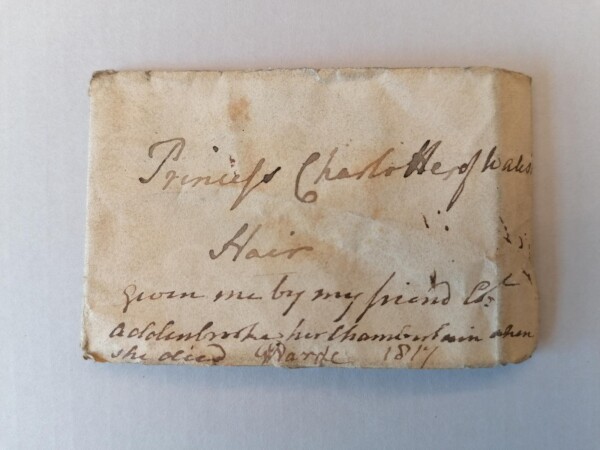 Princeſs Charlotte of Wales
Hair
given me by my friend Col
Addenbrooke her Chamberlain when
she died 1817